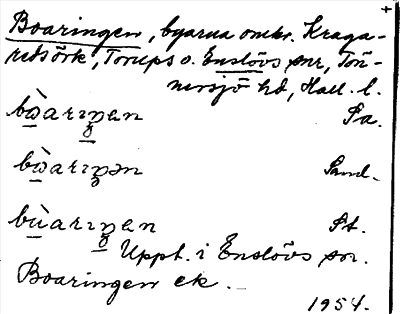 Boaringen, byarna omkr. Kraga-
redsörk, Torups o. Enslövs snr, Tön-
nersjö hd, Hall. l.
bꞷ̀arıŋən Pa.
bꞷ̀arıŋən Sand.
bùarıŋən St.
Uppt. i Enslövs sn.
Boaringen ek.
1954.